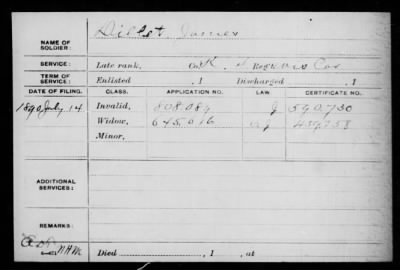 NAME OF SOLDIER: Dillst, James
SERVICE: Late rank, Co. K, Reg't Cav
TERM OF SERVICE: Enlisted , 1 Discharged , 1
DATE OF FILING. CLASS. APPLICATION NO. LAW CERTIFICATE NO.
1890 July 14 Invalid, 808.089 J 590.730
Widow, 645.016 439.758
Minor,
ADDITIONAL SERVICES:
REMARKS:
Died , 1 , at